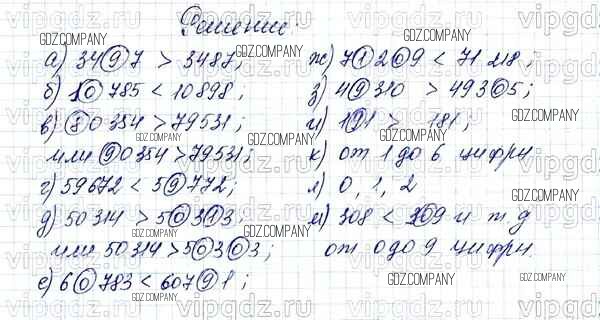 Решение:
а) 3497 > 3487;
б) 10785 < 10898;
в) 80354 > 79531;
или 90354 > 79531;
г) 59672 < 59772;
д) 50314 > 50313;
или 50314 > 50303;
е) 60783 < 60791;
ж) 71209 < 71218;
з) 49310 > 49305;
и) 191 > 181;
к) от 1 до 6 цифры
л) 0, 1, 2
м) 308 < 309 и т.д
от 0 до 9 цифры.
GDZ.COMPANY
vipgdz.ru